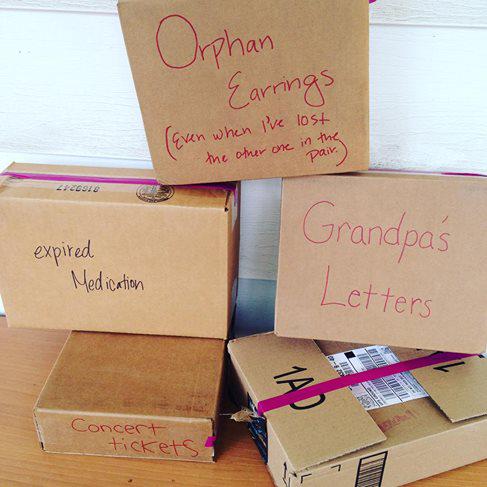 Orphan
Earrings
(Even when I've lost
the other one in the
pair.)
expired
Medication
9169247
Grandpa's
Letters
Concert
tickets
1AD